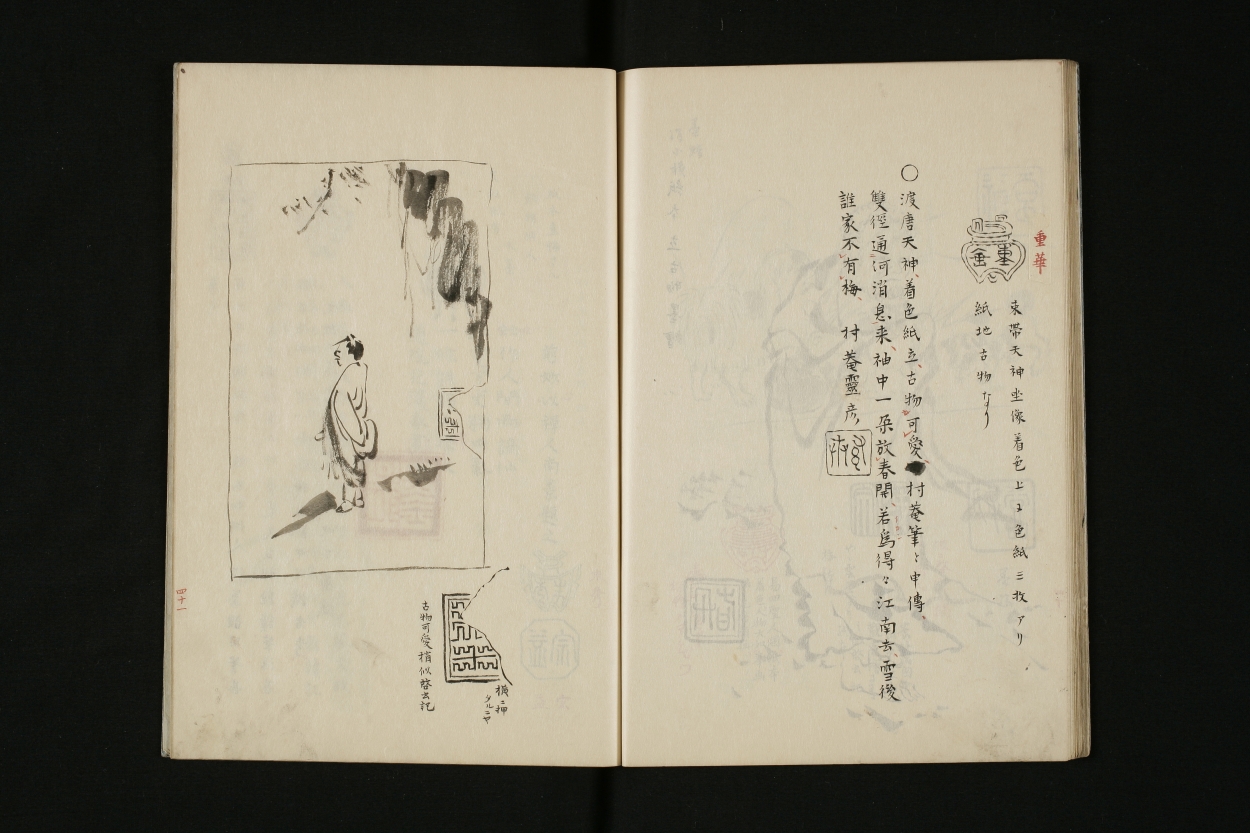 重華
重華
束帶天神坐像着色上ヱ色紙三枚アリ
紙地古物なり
〇渡唐天神着色紙立古物可愛村菴筆〻申傳
雙徑通河消息来袖中一朶放春開若爲得〻江南去雪後
誰家不有梅　村菴靈彦
古物可愛稍似啓書記
横ニ押
タルニヤ
四十一